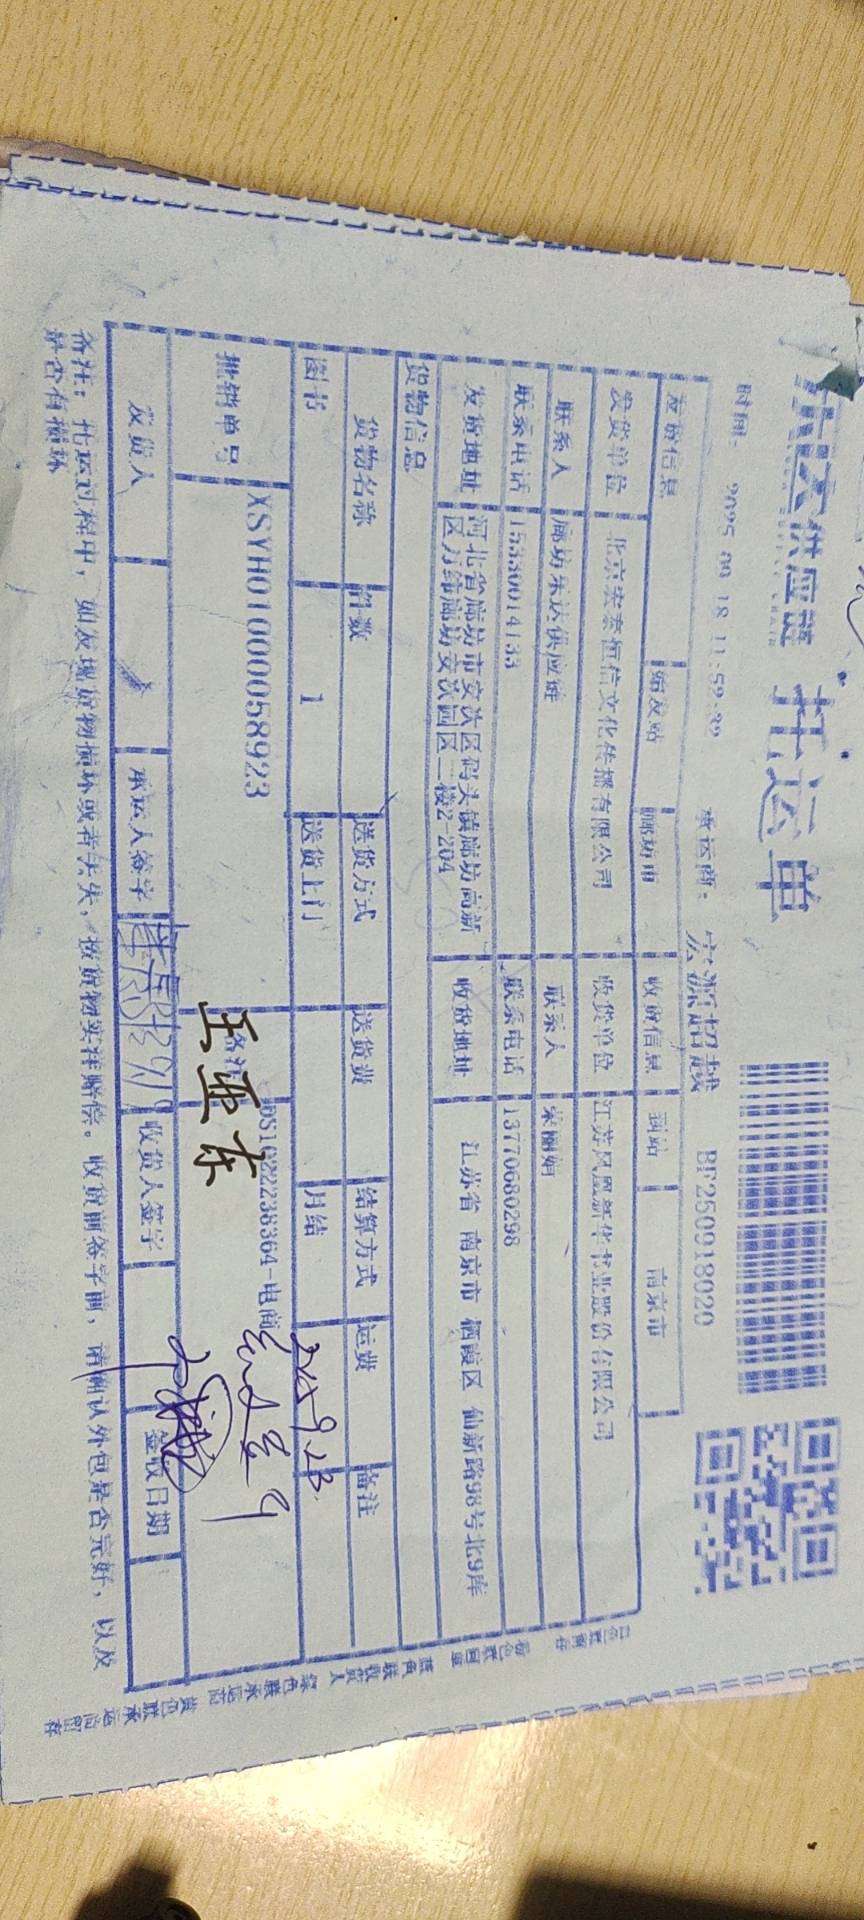 供应链 托运单
时间: 2025-09-18 11:59:39 承运商: 宏源超越 BF250918020
发货信息 始发站 廊坊市 收货信息 到站 南京市
发货单位 北京宏泰恒信文化传播有限公司 收货单位 江苏凤凰新华书业股份有限公司
联系人 廊坊朱达供应链 联系人
联系电话 15330014133 联系电话 13770680298
发货地址 河北省廊坊市安次区码头镇廊坊高新区万纬廊坊安次园区二楼2-204 收货地址 江苏省 南京市 栖霞区 仙新路98号北9库
货物信息
货物名称 件数 送货方式 送货费 结算方式 运费 备注
图书 1 送货上门 月结
批销单号 XSYH01000058923 备注 DS10222238364-电商
王亚东
发货人 承运人签字 收货人签字 签收日期
备注: 托运过程中, 如发现货物损坏或者丢失, 按货物实祥赔偿。收货前签字前, 请确认外包是否完好, 以及
是否有损坏